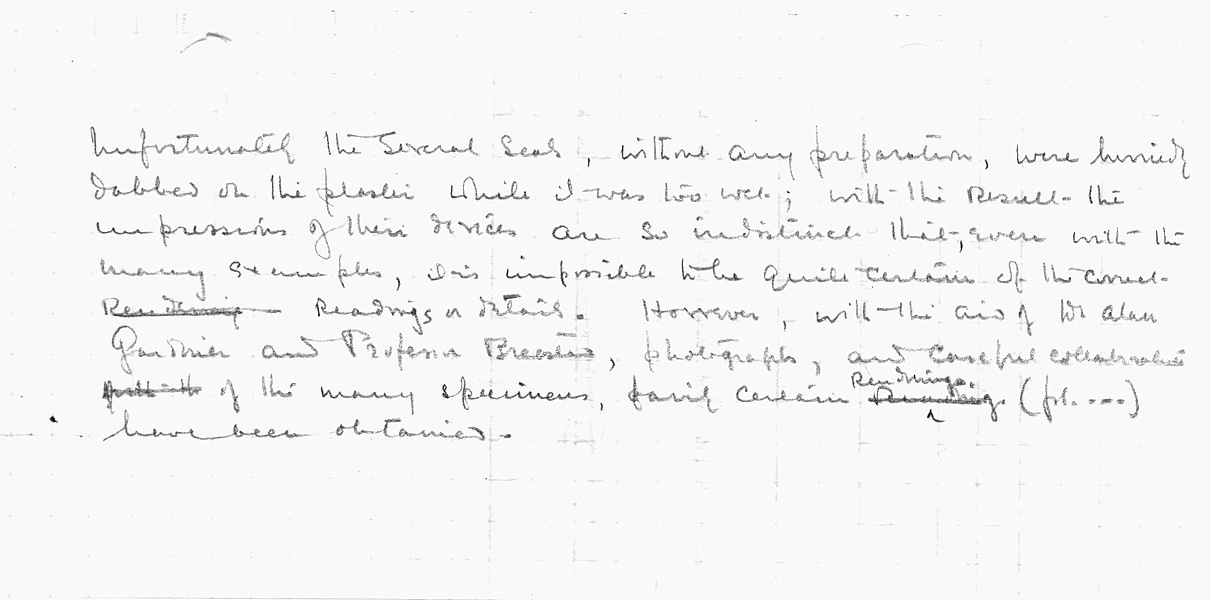 Unfortunately the several seals, without any preparation, were hurriedly
dabbed on the plaster while it was too wet; with the result the
impressions of their devices are so indistinct that, even with the
many examples, it is impossible to be quite certain of the correct
Renderings Readings or details. However, with the aid of Dr Alan
Gardiner and Professor Breasted, photographs, and careful collaboration
of the many specimens, fairly certain Renderings. (pl. ----)
have been obtained.